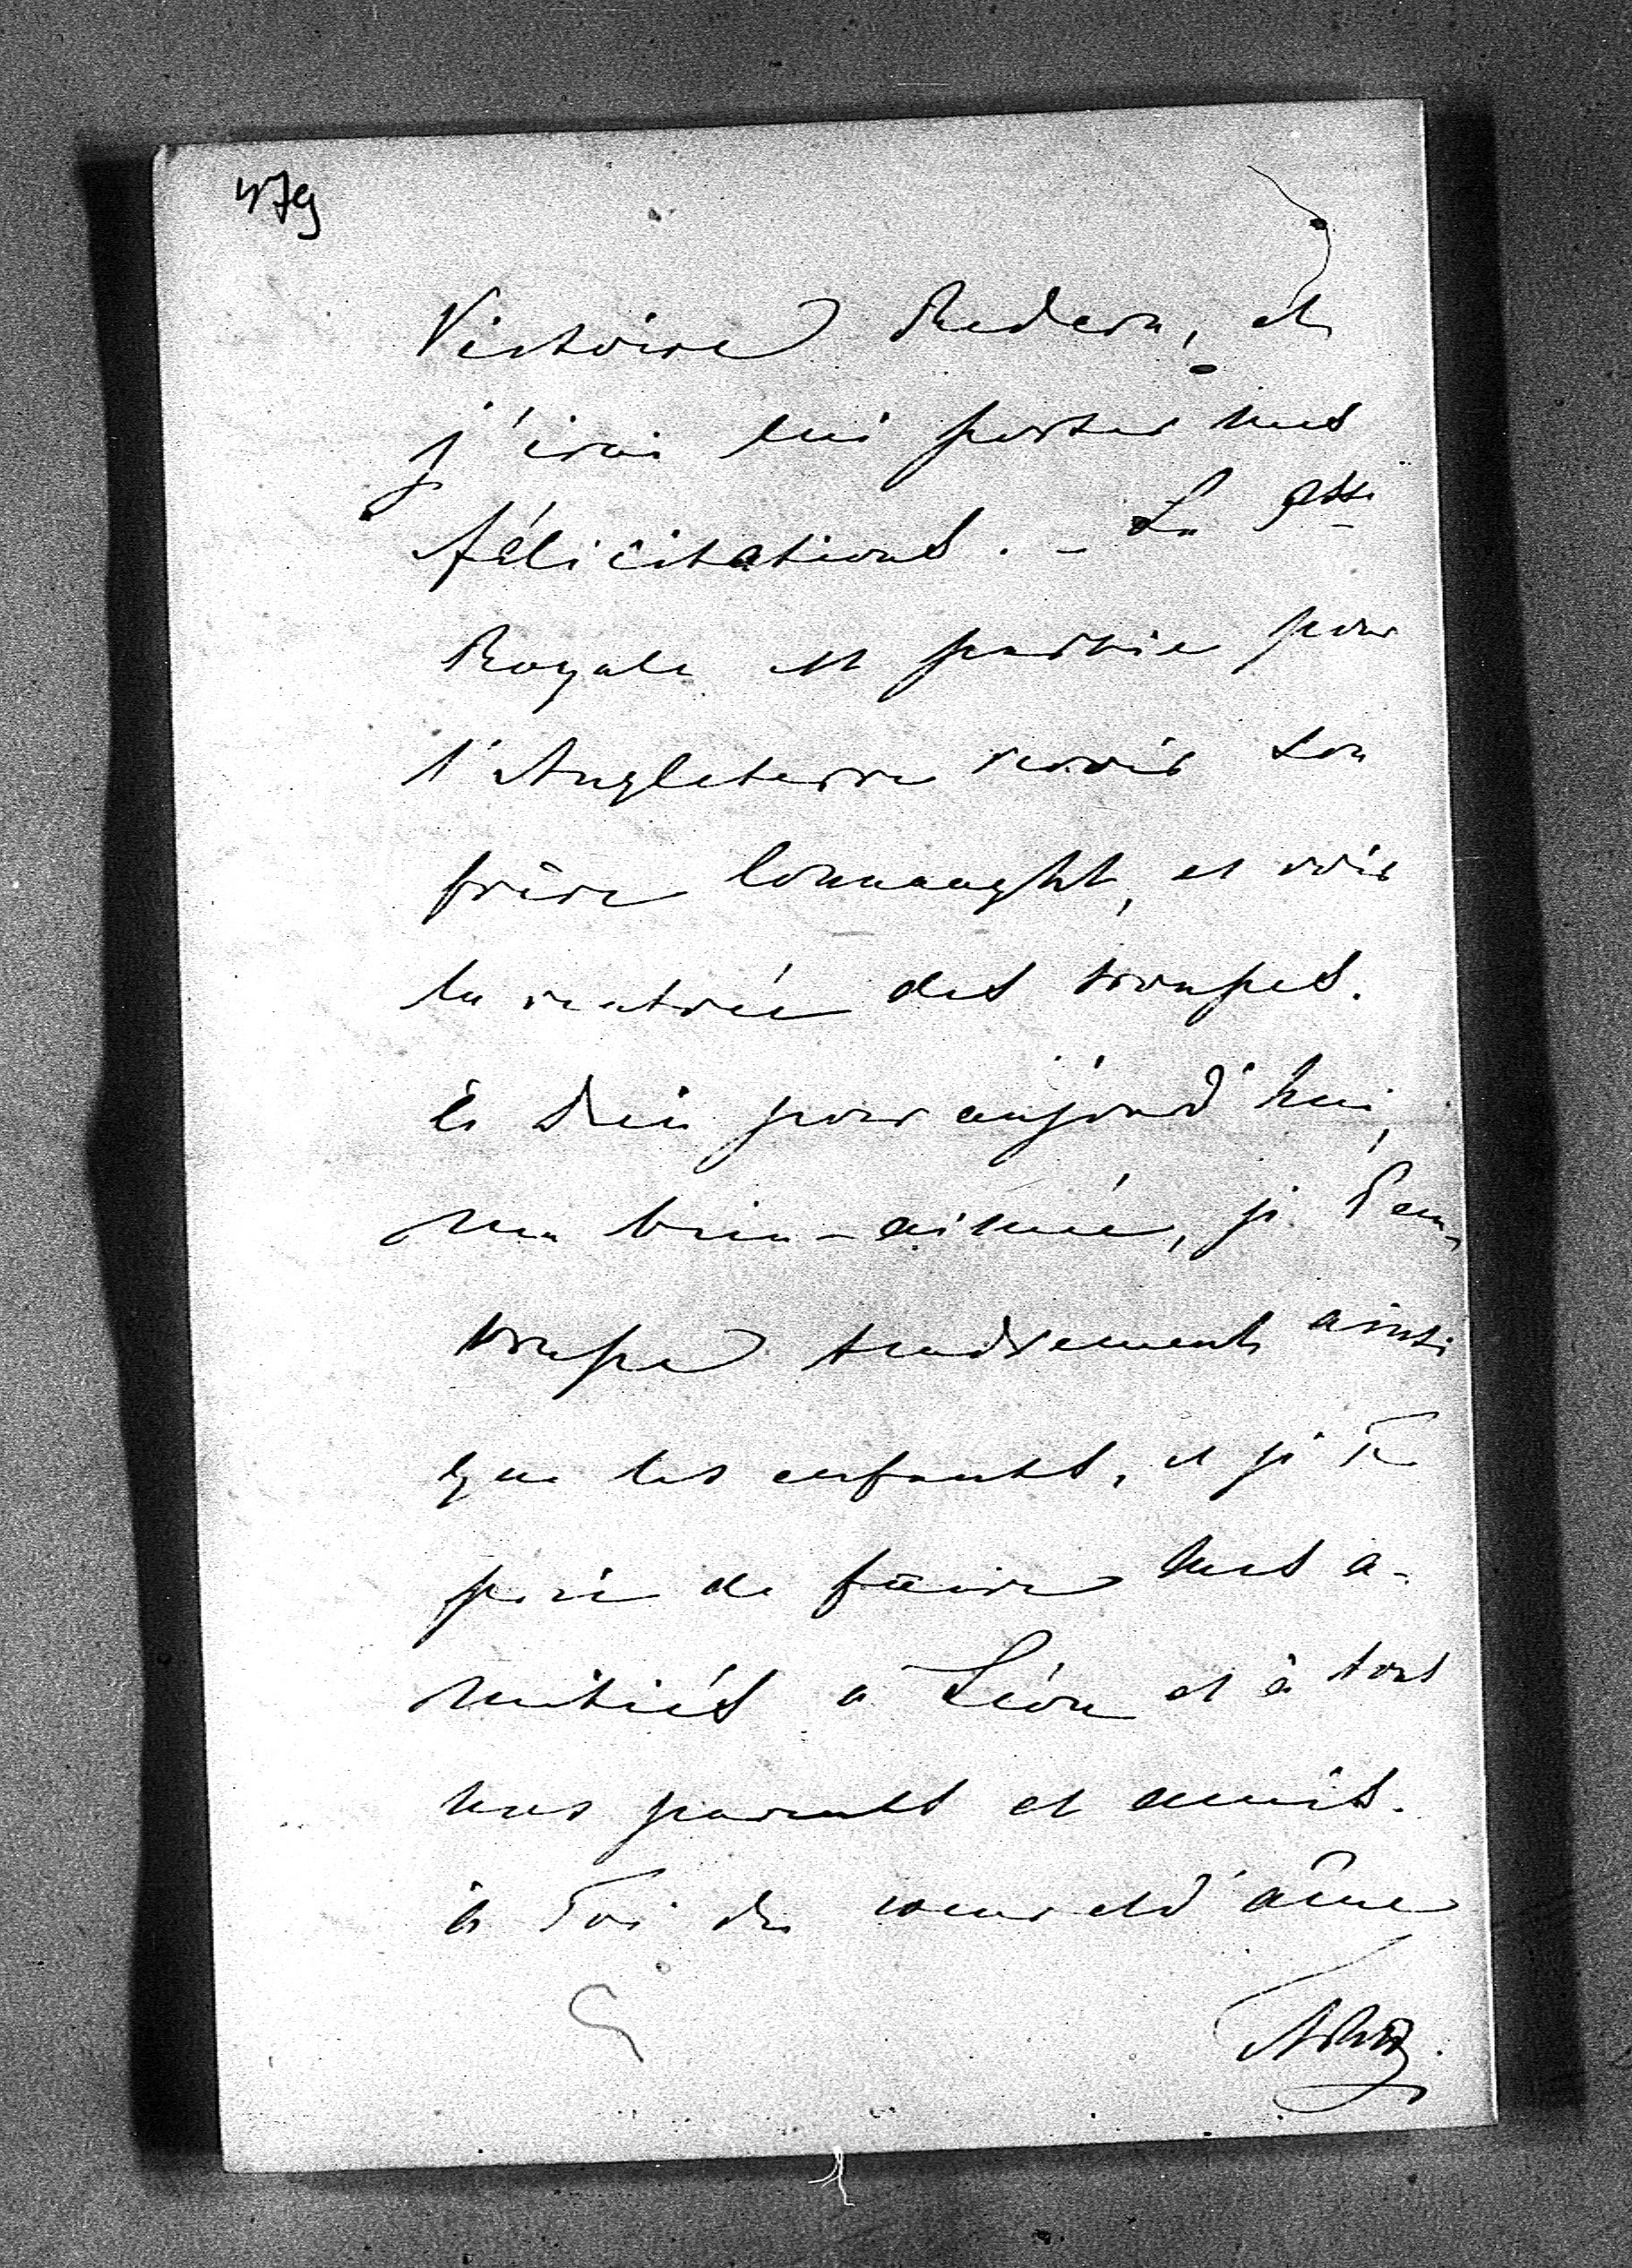 479
Victoire Redern, et
j'irai lui porter mes
félicitations. - La Psse
Royale est partie pour
l'Angleterre revoir son
frère Connaught, et voir
la rentrée des troupes.
à Dieu pour aujourd'hui,
ma bien-aimée, je T'em-
brasse tendrement ainsi
que les enfants, et je Te
prie de faire mes a-
mitiés à Léon et à tous
nos parents et amis.
à Toi de coeur et d'âme